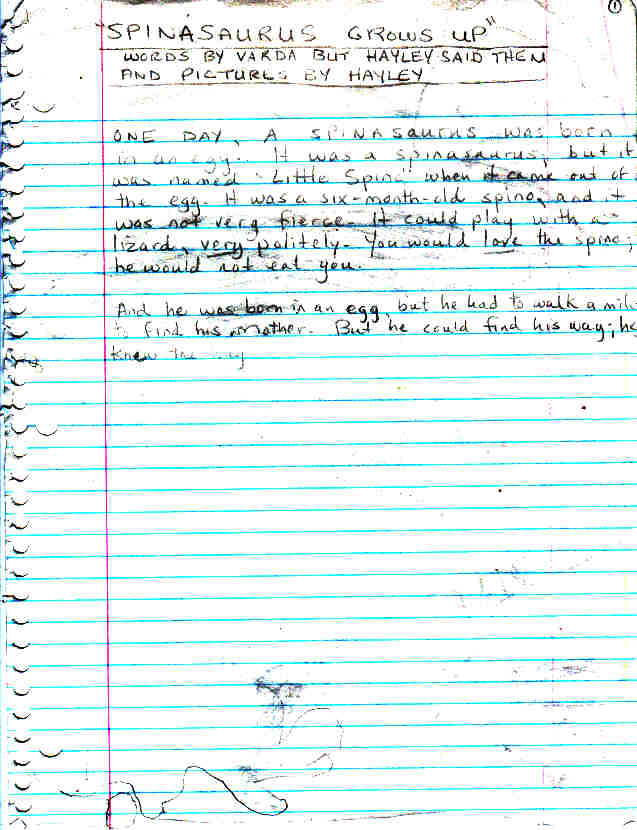 1
"SPINASAURUS GROWS UP"
WORDS BY VARDA BUT HAYLEY SAID THEM
AND PICTURES BY HAYLEY
ONE DAY, A SPINASAURUS was born
in an egg. It was a spinasaurus, but it
was named "Little Spino" when it came out of
the egg. It was a six-month-old spino, and it
was not very fierce. It could play with a
lizard, very politely. You would love the spino;
he would not eat you.
And he was born in an egg, but he had to walk a mile
to find his mother. But he could find his way; he
knew the